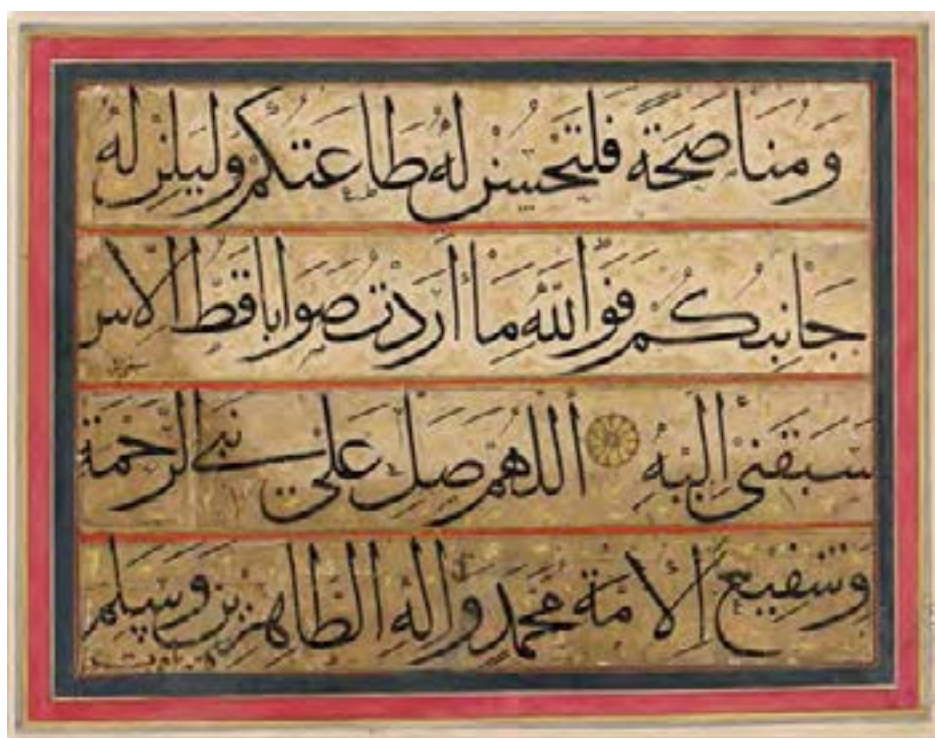 وَمُنَاصَحَةٍ فَلْتَحْسُنْ لَهُ طَاعَتُكُمْ وَلْيَلِنْ لَهُ
جَانِبُكُمْ فَوَاللهِ مَا أَرَدْتُ صَوَابًا قَطُّ إِلَّا
سَبَقَنِي إِلَيْهِ اَللّٰهُمَّ صَلِّ عَلٰى نَبِيِّ الرَّحْمَةِ
وَشَفِيعِ الْأُمَّةِ مُحَمَّدٍ وَآلِهِ الطَّاهِرِينَ وَسَلِّمْ